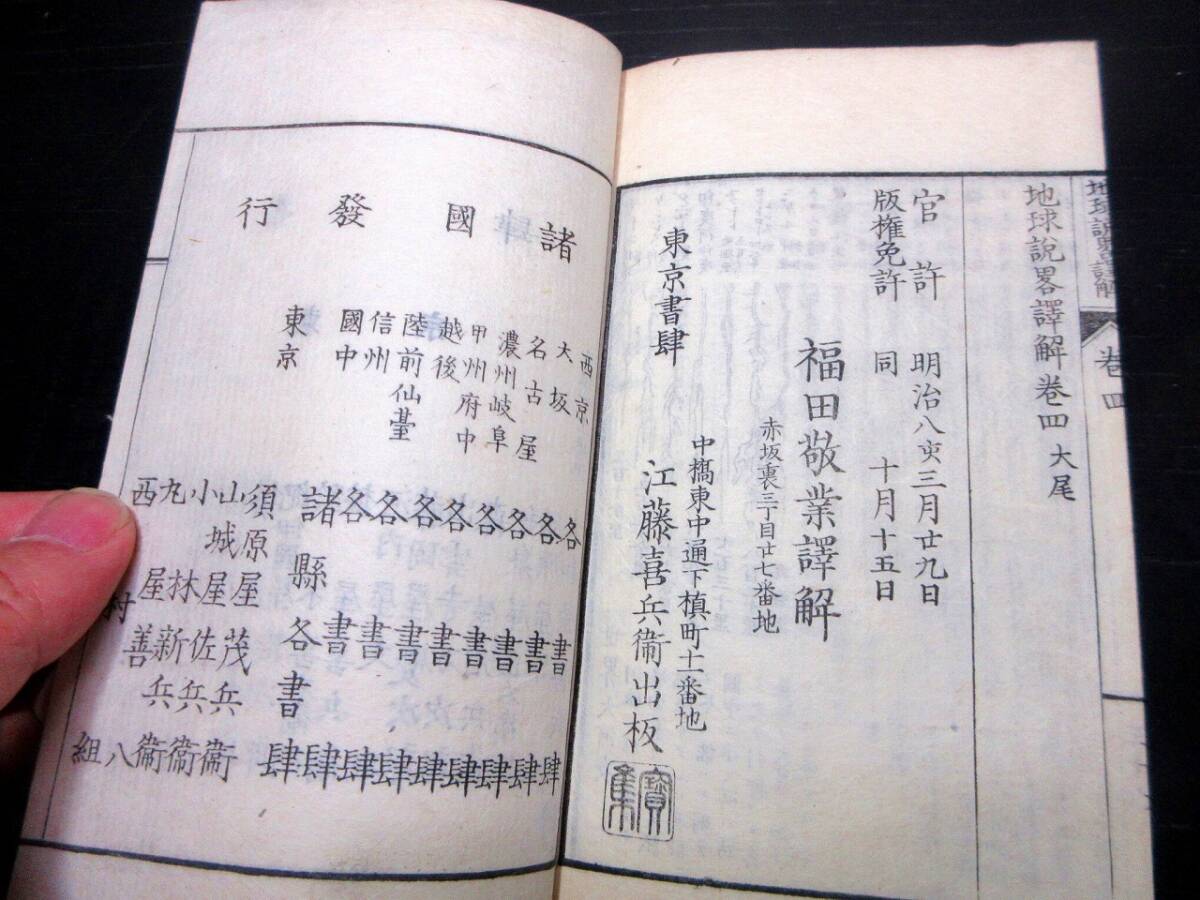 地球說畧譯解 卷四
地球說畧譯解卷四 大尾
官許 明治八亥三月廿九日
版權免許 同 十月十五日
福田敬業譯解
赤坂裏三丁目廿七番地
東京書肆
中橋東中通下槙町十一番地
江藤喜兵衞出板
寶集
諸國發行
西京 各書肆
大坂 各書肆
名古屋 各書肆
濃州岐阜 各書肆
甲州府中 各書肆
越後 各書肆
陸前仙臺 各書肆
信州 各書肆
國中 諸縣各書肆
東京 須原屋茂兵衞
山城屋佐兵衞
小林新兵衞
丸屋善八
西村組